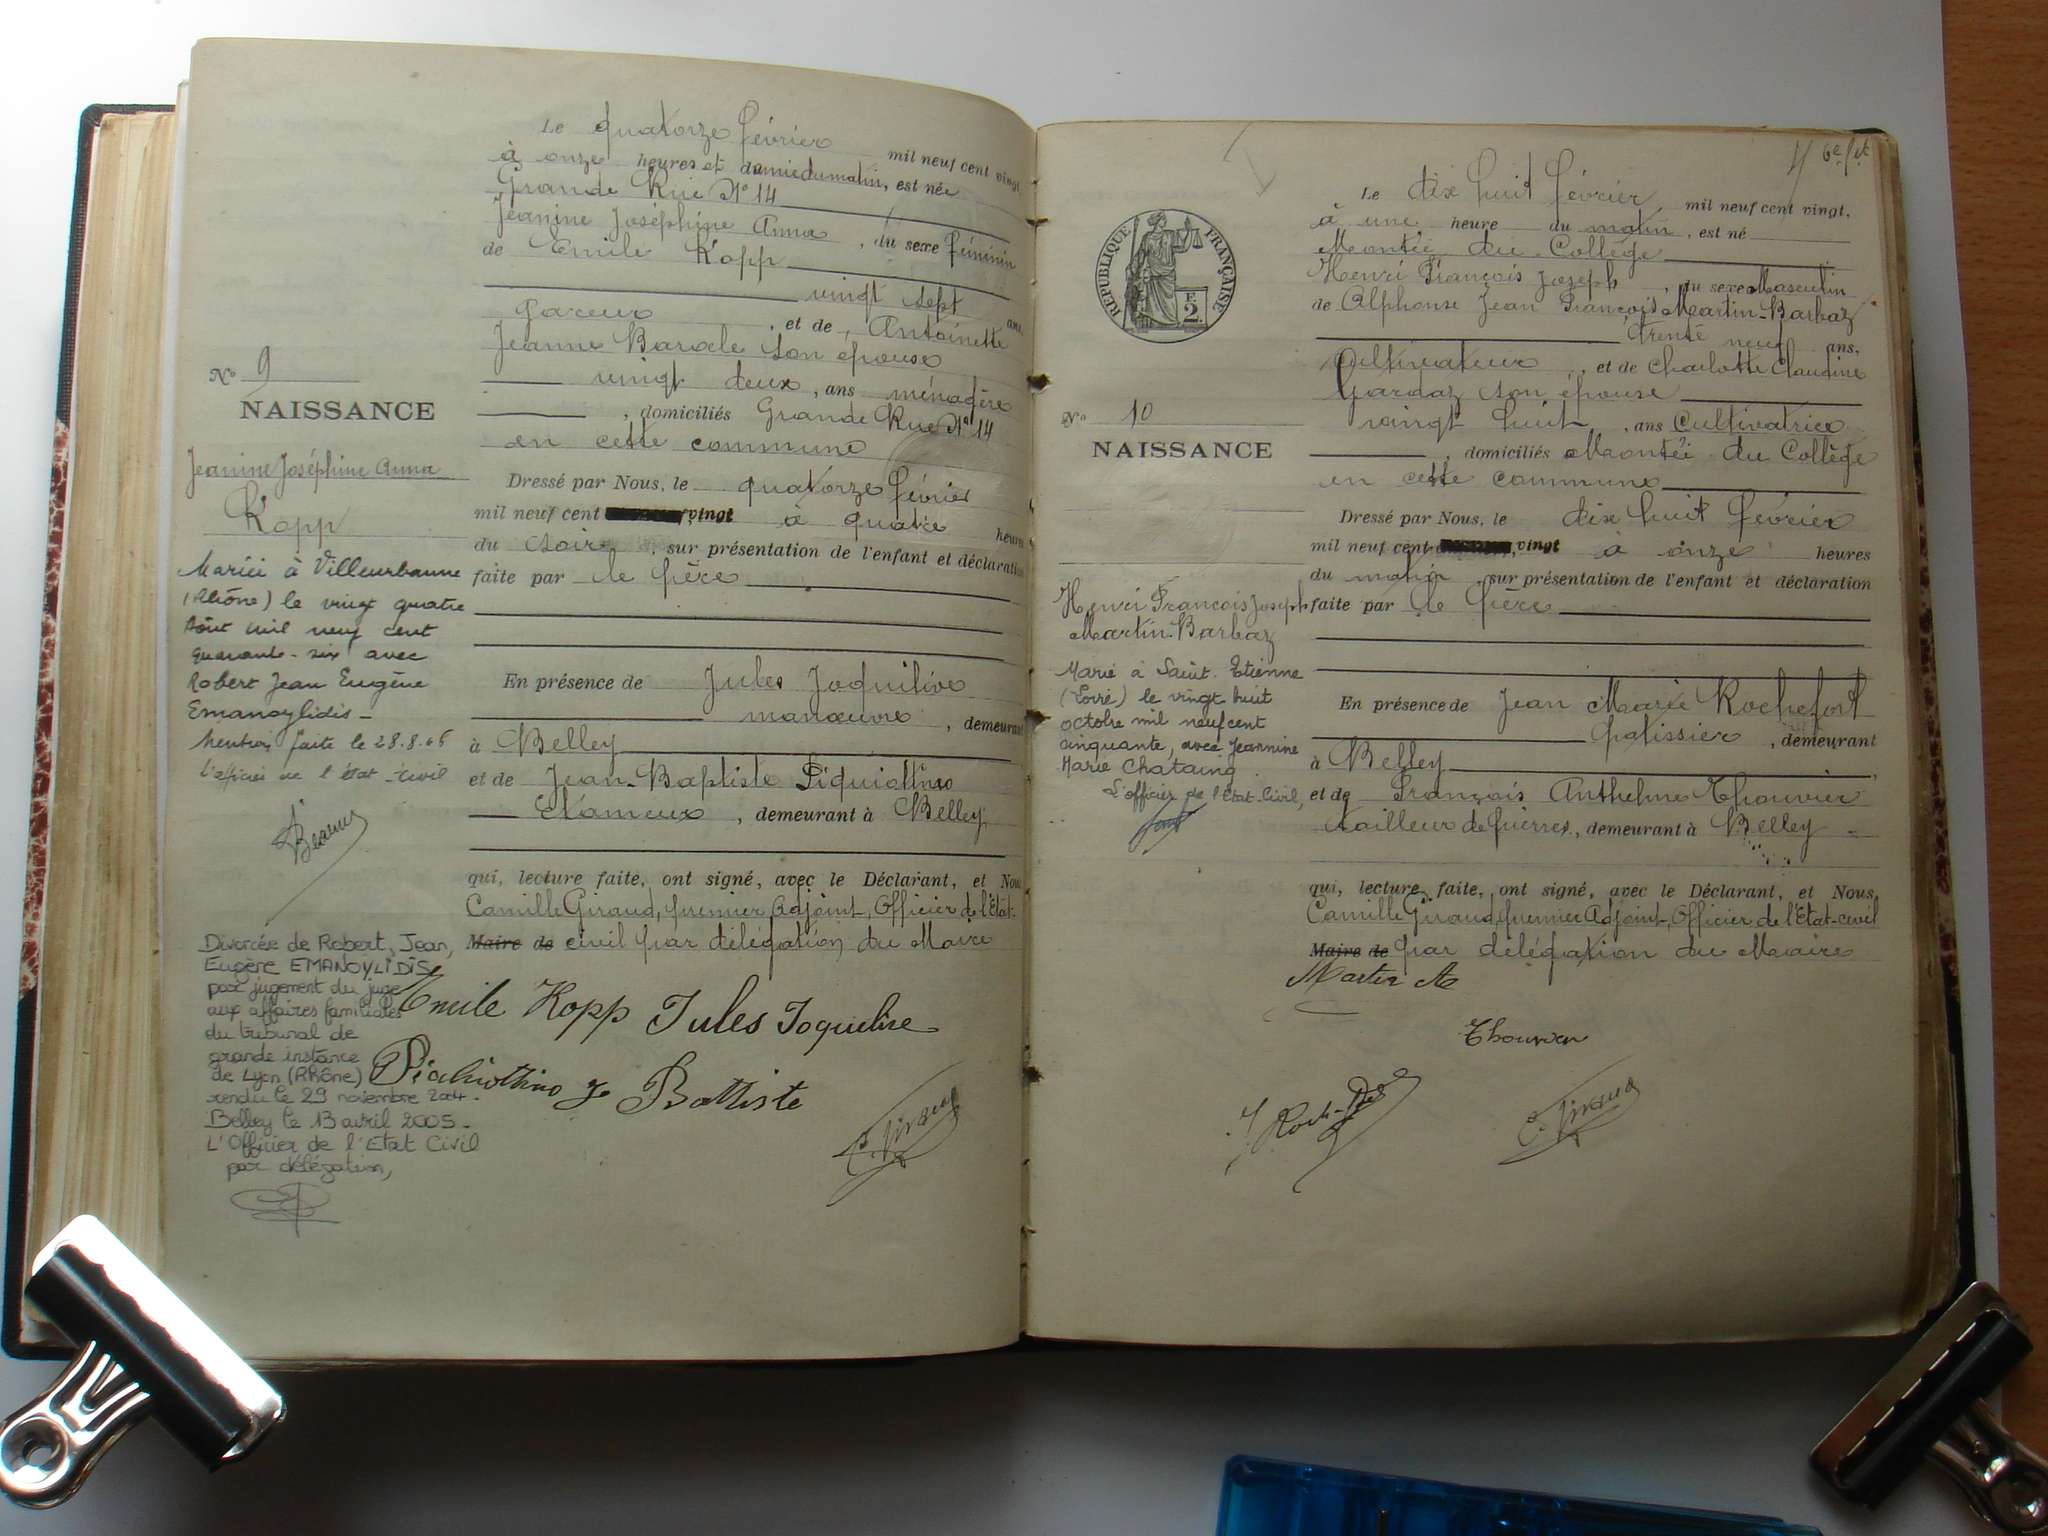 Le quatorze février mil neuf cent vingt
à onze heures et demie du matin, est née
Grande Rue N° 14
Jeanine Joséphine Anna, du sexe féminin
de Emile Kopp
vingt sept ans
, et de, Antoinette
Jeanne Barcle son épouse
vingt deux, ans ménagère
, domiciliés Grande Rue N° 14
en cette commune
Dressé par Nous, le quatorze février
mil neuf cent vingt à quatre heures
du soir, sur présentation de l'enfant et déclaration
faite par le père
En présence de Jules
manœuvre, demeurant
à Belley
et de Jean-Baptiste
Etameur, demeurant à Belley
qui, lecture faite, ont signé, avec le Déclarant, et Nous
Camille Giraud, premier Adjoint, Officier de l'Etat-
Maire de civil par délégation du Maire
Emile Kopp Jules
Battiste
C. Giraud
N° 9
NAISSANCE
Jeanine Joséphine Anna
Kopp
Mariée à Villeurbanne
(Rhône) le vingt quatre
Août mil neuf cent
quarante-six avec
Robert Jean Eugène
Emanoylidis-
Mention faite le 28.8.46
l'officier de l'état-civil
Divorcée de Robert, Jean,
Eugène EMANOYLIDIS
par jugement du juge
aux affaires familiales
du tribunal de
grande instance
de Lyon (Rhône)
rendu le 29 novembre 2004.
Belley le 13 avril 2005.
L'Officier de l'Etat Civil
par délégation,
REPUBLIQUE FRANÇAISE
F.
2.
Le dix huit février, mil neuf cent vingt,
à une heure du matin, est né
Montée du Collège
Henri François Joseph, du sexe Masculin
de Alphonse Jean François Martin-Barbaz
Trente neuf ans,
Cultivateur, et de Charlotte Claudine
Gardaz son épouse
vingt huit, ans Cultivatrice
, domiciliés Montée du Collège
en cette commune
Dressé par Nous, le dix huit février
mil neuf cent vingt à onze heures
du matin, sur présentation de l'enfant et déclaration
faite par le père
En présence de Jean Marie Rochefort
patissier, demeurant
à Belley
et de François Anthelme Thouvier
tailleur de pierres, demeurant à Belley
qui, lecture faite, ont signé, avec le Déclarant, et Nous,
Camille Giraud, premier Adjoint, Officier de l'Etat-civil
Maire de par délégation du Maire
C. Giraud
N° 10
NAISSANCE
Henri François Joseph
Martin-Barbaz
Marié à Saint-Etienne
(Loire) le vingt huit
octobre mil neuf cent
cinquante, avec Jeannine
Marie Chataing
L'officier de l'Etat-Civil,